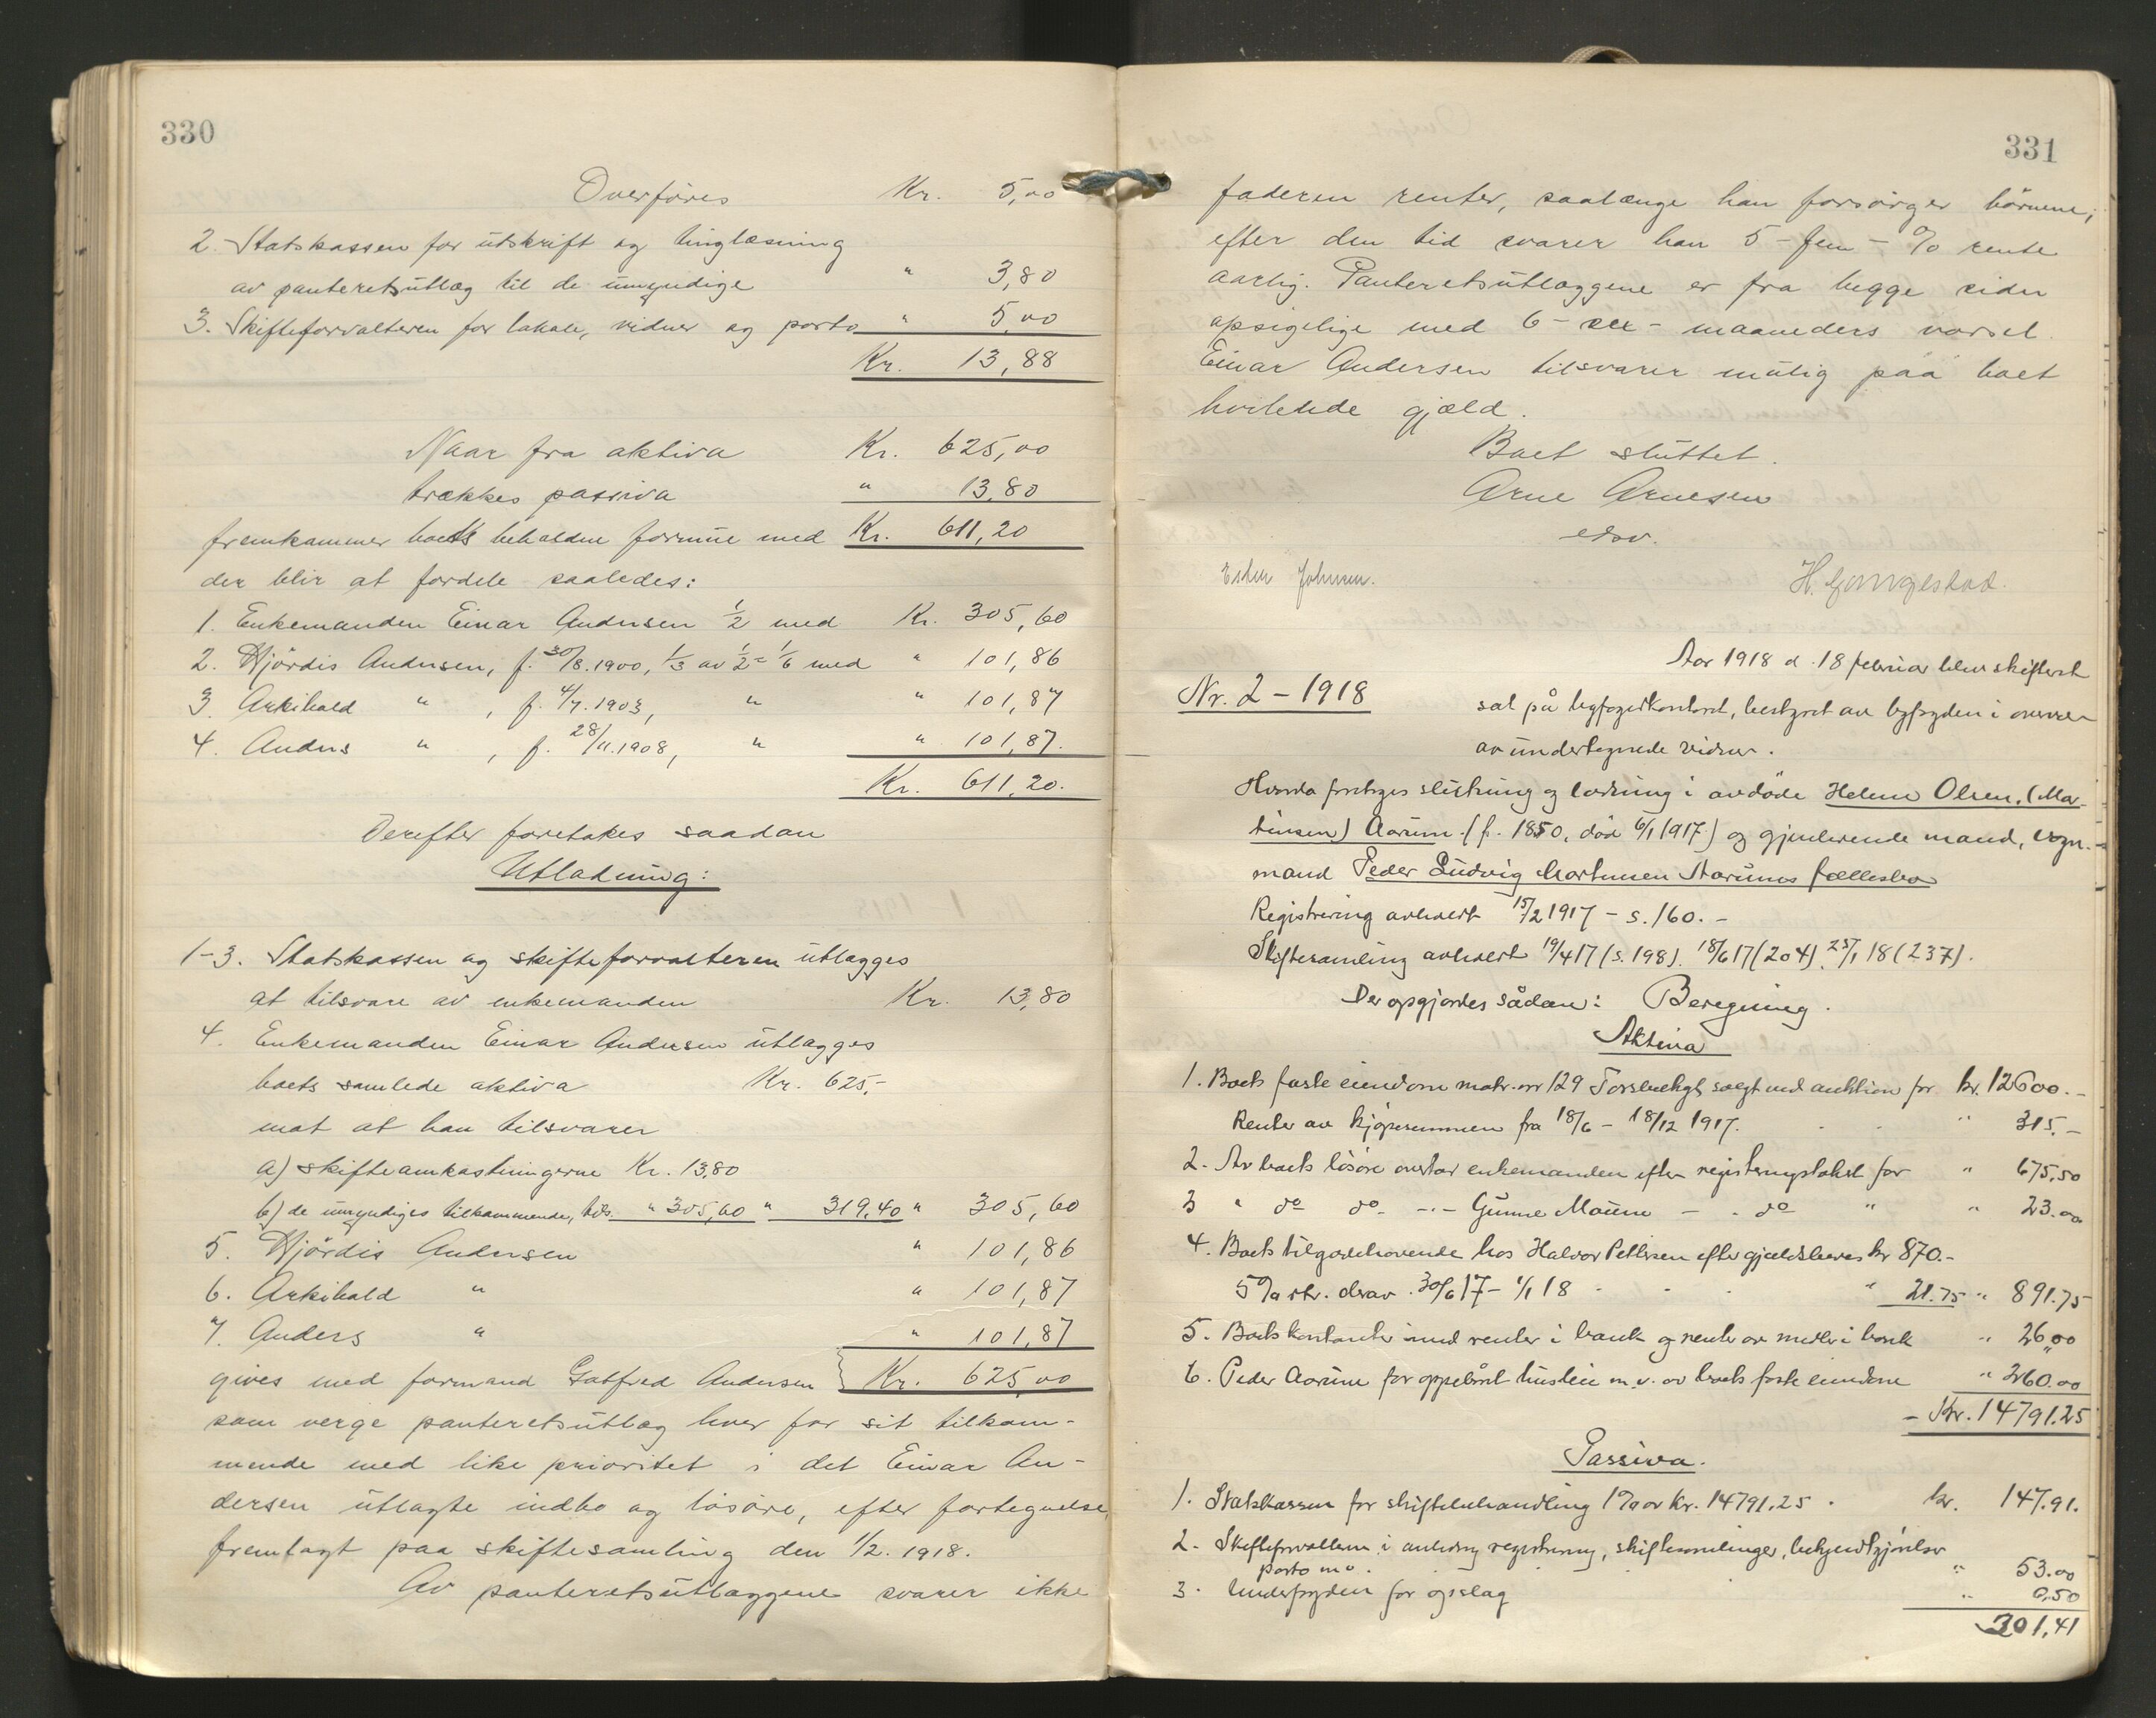 330
Overføres Kr. 5,00
2. Statskassen for utskrift og tinglæsning
av panteretsutlæg til de umyndige " 3,80
3. Skifteforvalteren for lokale, vidner og porto " 5,00
Kr. 13,88
Naar fra aktiva Kr. 625,00
trækkes passiva " 13,80
fremkommer boets beholdne formue med Kr. 611,20
der blir at fordele saaledes:
1. Enkemanden Einar Andersen 1/2 med Kr. 305,60
2. Hjördis Andersen, f. 30/8.1900, 1/3 av 1/2 = 1/6 med " 101,86
3. Arkibald " , f. 4/7.1903, " " 101,87
4. Anders " , f. 28/11.1908, " " 101,87.
Kr. 611,20.
Derefter foretakes saadan
Utlodning:
1-3. Statskassen og skifteforvalteren utlægges
at tilsvare av enkemanden Kr. 13,80
4. Enkemanden Einar Andersen utlægges
boets samlede aktiva Kr. 625,-
mot at han tilsvarer
a) skifteomkostningerne Kr. 13,80
b) de umyndiges tilkommende, tils. " 305,60 " 319,40 " 305,60
5. Hjördis Andersen " 101,86
6. Arkibald " " 101,87
7. Anders " " 101,87
gives med formand Gotfred Andersen } Kr. 625,00
som verge panteretsutlæg hver for sit tilkom-
mende med like prioritet i det Einar An-
dersen utlagte indbo og løsøre, efter fortegnelse
fremlagt paa skiftesamling den 1/2. 1918.
Av panteretsutlæggene svarer ikke
331
faderen renter, saalænge han forsörger börnene;
efter den tid svarer han 5 - fem - % rente
aarlig. Panteretsutlæggene er fra begge sider
opsigelige med 6 - sex - maaneders varsel.
Einar Andersen tilsvarer mulig paa boet
hvilende gjæld.
Boet sluttet.
Arne Arnesen
edsv.
Esther Johnsen.
Aar 1918 d. 18 februar blev skifteret
Nr. 2 - 1918
sat på byfogedkontoret, bestyret av byfogden i overvær
av undertegnede vidner.
Hvorda foretoges slutning og lodning i avdöde Helene Olsen, (Mar-
tinsen) Aarum (f. 1850, død 6/1 1917) og gjenlevende mand, vogn-
mand Peder Ludvig Martinsen Aarums fællesbo
Registrering avholdt 15/2 1917 - s. 160. -
Skiftesamling avholdt 19/4 17 (s. 198). 18/6 17 (204). 25/1 18 (237).
Der opgjordes sådan: Beregning.
Aktiva
1. Boets faste eiendom matr. nr 129 Torsbekgt solgt ved auktion for kr. 12600.-
Renter av kjøpesummen fra 18/6 - 18/12 1917. " 315.-
2. Av boets lösöre overtar enkemanden efter registreringstakst for " 675,50
3 " do do -"- Gunne Moum - " do " " 23.00
4. Boets tilgodehavende hos Halvor Pettersen efter gjældsbevis kr 870.-
5% rtr. derav 30/6 17 - 1/1 18 " 21.75 " 891.75
5. Boets kontanter med renter i bank og rente av midler i bank " 26,00
6. Peder Aarum for oppebåret husleie m.v. av boets faste eiendom " 260.00
- Kr. 14791.25
Passiva.
1. Statskassen for skiftebehandling 1% av Kr. 14791.25 . kr. 147.91.
2. Skifteforvalteren i anledng registrering, skiftesamlinger, bekjendtgjörelser
porto m.v. " 53.00
3. Underfogden for opslag " 0,50
301,41